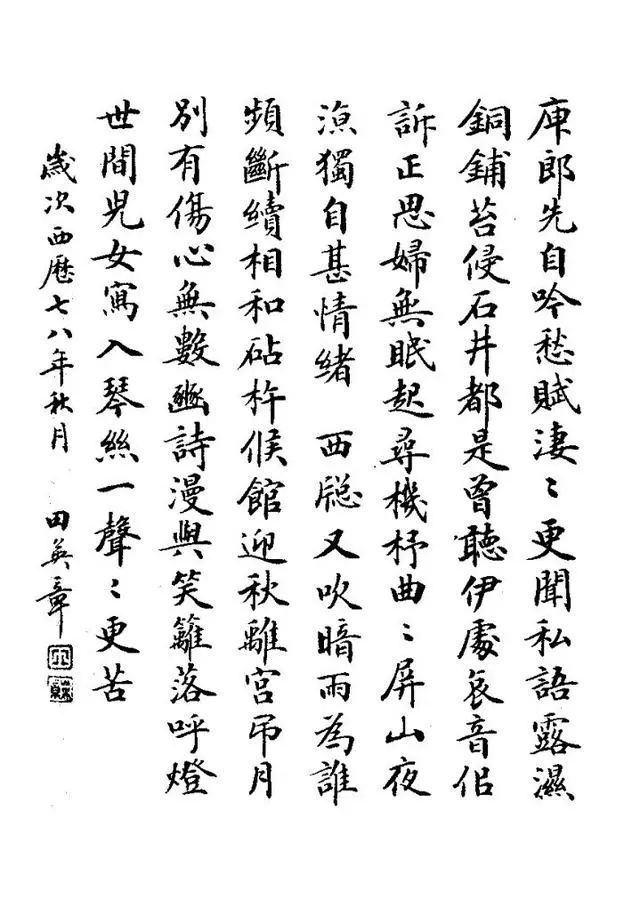 庾郎先自吟愁賦淒〻更聞私語露濕
銅鋪苔侵石井都是曾聽伊處哀音佀
訴正思婦無眠起尋機杼曲〻屏山夜
涼獨自甚情緒　西牕又吹暗雨為誰
頻斷續相和砧杵候館迎秋離宮吊月
別有傷心無數豳詩漫與笑籬落呼燈
世間兒女寫入琴絲一聲〻更苦
歲次西曆七八年秋月　田英章